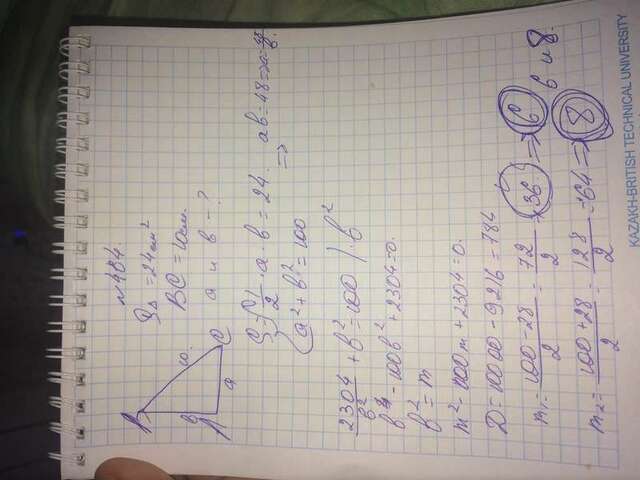 №484.
B
S△ = 24 см²
BC = 10 см.
в
10.
a и в - ?
A
a
C
S = 1/2 · a · в = 24. => ав = 48 => a = 48/в.
a² + в² = 100
2304/в² + в² = 100 | · в²
в⁴ - 100в² + 2304 = 0.
в² = m
m² - 100m + 2304 = 0.
D = 10000 - 9216 = 784
m₁ = (100 - 28)/2 = 72/2 = 36 => 6
6 и 8.
m₂ = (100 + 28)/2 = 128/2 = 64 => 8
KAZAKH-BRITISH TECHNICAL UNIVERSITY